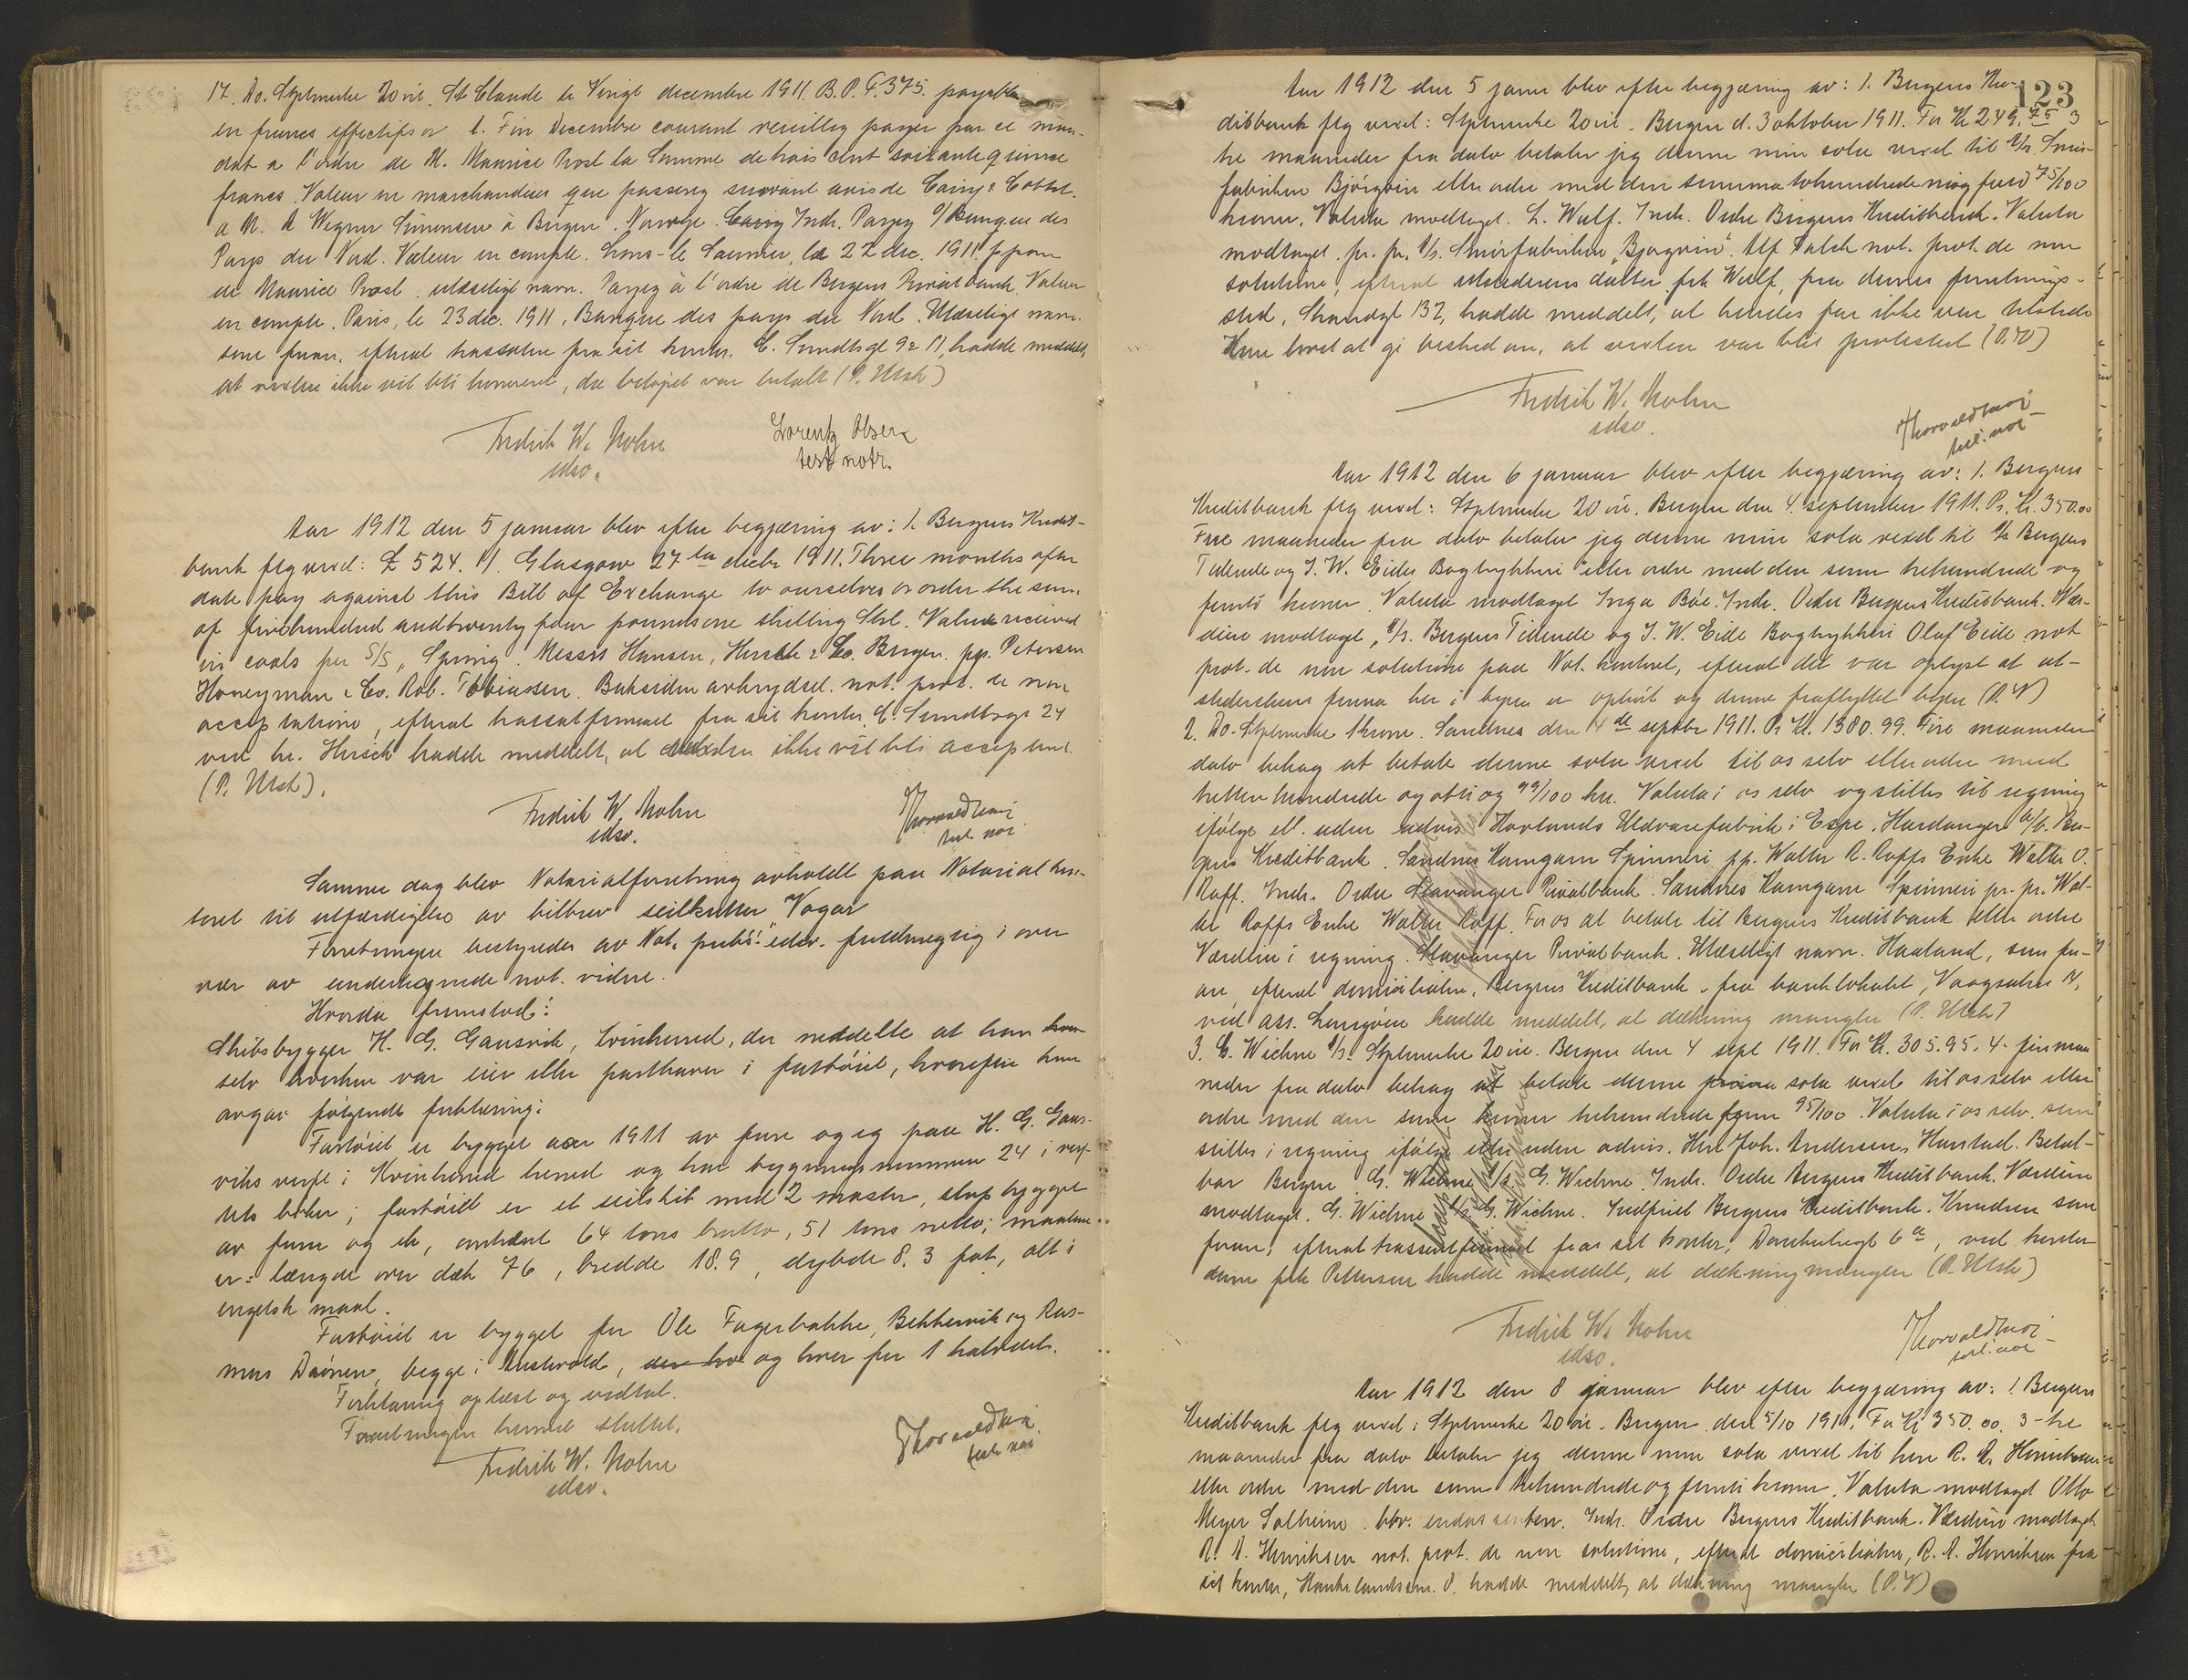 17. Do. Stplmerke 20 öre. St Claude le Vingt decembre 1911. B.P.F. 375. payable
en francs effectifs or l. Fin Decembre courant veuillez payer par ce man-
dat a l'ordre de M. Maurice Prost la Somme de trois cent soixante quinze
francs. Valeur en marchandises que passerez suivant avis de
a M. A Wegner Simonsen à Bergen. Norvège. Indr. Payez Banque des
Pays du Nord. Valeur en compte. Lons-le Saunier, le 22 dec. 1911. p pon
de Maurice Prost. ulæseligt navn. Payez à l'ordre de Bergens Privatbank. Valeur
en compte. Paris, le 23 dec. 1911. Banque des pays du Nord. Ulæseligt navn.
som foran, efterat trassaten fra sit kontor. C. Sundtsgt 92 II, hadde meddelt,
at vexlen ikke vil bli honoreret, da beløpet var betalt (P. Utsk)
Fredrik W. Mohn
edsv.
Lorentz Olsen
test notr.
Aar 1912 den 5 januar blev efter begjæring av: 1. Bergens Kredit-
bank flg vexel: £ 524. 1/. Glasgow 27 decbr 1911. Three months after
date pay against this Bill of Exchange to ourselves or order the sum
of fivehundred and twenty four pounds one shilling Strl. Value received
in coals per S/S "Spring". Messrs Hansen, & Co. Bergen. pp. Petersen
Honeyman & Co. Rob. Tobiassen. Baksiden avkrydset. not. prot. de non
acceptatione, efterat trassatfirmaet fra sit kontor, C. Sundtsgt 24
ved hr. Hirsch hadde meddelt, at vexelen ikke vil bli acceptert.
(P. Utsk).
Fredrik W. Mohn
edsv.
Samme dag blev Notarialforretning avholdt paa Notarialkon-
toret til utfærdigelse av bilbrev seilkutter "Vagar"
Forretningen bestyredes av Not. publ.s edsv. fuldmægtig i over-
vær av undertegnede not. vidne.
Hvorda fremstod:
Skibsbygger H. G. Gausvik, Kvinherred, der meddelte at han
selv hverken var eier eller parthaver i fartöiet, hvorefter han
avgav følgende forklaring:
Fartöiet er bygget aar 1911 av furu og eg paa H. G. Gaus-
viks verft i Kvinherred herred og har bygningsnummer 24 i verf-
tets böker; fartöiet er et seilskib med 2 master, bygget
av furu og ek, omtrent 64 tons brutto, 51 tons netto; maalene
er: længde over dæk 76, bredde 18.9, dybde 8.3 fot, alt i
engelsk maal.
Fartöiet er bygget for Ole Fagerbakke, Bekkervik og Ras-
mus Drönen, begge i Austevold, og hver for 1 halvdel.
Forklaring oplæst og vedtat.
Forretningen hermed sluttet.
Fredrik W. Mohn
edsv.
123
Aar 1912 den 5 januar blev efter begjæring av: 1. Bergens Kre-
ditbank flg vexel: Stplmerke 20 öre. Bergen d. 3 oktober 1911. For Kr 249.75 3
tre maaneder fra dato betaler jeg denne min sola vexel til A/S Smör-
fabriken Björgvin eller ordre med den summa tohundredeniog firti 75/100
kroner. Valuta modtaget. L. Wulf. Indr. Ordre Bergens Kreditbank. Valuta
modtaget. pr. pr. A/S. Smörfabriken "Bjorgvin". Alf Falch not. prot. de non
solutione, efterat utstederens datter frk Wulf, fra dennes forretnings-
sted, Strandgt 137, hadde meddelt, at hendes far ikke var tilstede
Hun lovet at gi besked om, at vexlen var blit protestert (P.V)
Fredrik W. Mohn
edsv.
Aar 1912 den 6 januar blev efter begjæring av: 1. Bergens
Kreditbank flg vexel: Stplmerke 20 öre. Bergen den 4. september 1911. Pr. Kr. 350.00
Fire maaneder fra dato betaler jeg denne min sola vexel til A/S Bergens
Tidende og J. W. Eides Bogtrykkeri eller ordre med den sum trehundrede og
femti kroner. Valuta modtaget Inga Böe. Indr. Ordre Bergens Kreditbank. Vær-
dien modtaget. A/S. Bergens Tidende og J. W. Eide Bogtrykkeri Olaf Eide not
prot. de non solutione paa Not. kontoret, efterat det var oplyst at ut-
stederskens firma her i byen er ophört og denne fraflyttet byen (P.V)
2. Do. Stplmerke 1 krone. Sandnes den 4de septbr 1911. Pr Kr. 1380.99. Fire maaneder
dato behag at betale denne sola vexel til os selv eller ordre med
trettenhundrede og otti og 99/100 kr. Valuta i os selv og stilles til regning
ifölge ell. uden advis Hovlands Uldvarefabrik i Espe. Hardanger. Ber-
gens Kreditbank. Sandnes Kamgarn Spinneri pp. Walter R. Raffs Enke Walter O.
Raff. Indr. Ordre Stavanger Privatbank. Sandnes Kamgarn Spinneri pr. pr. Wal-
ter Raffs Enke Walter Raff. For os at betale til Bergens Kreditbank eller ordre
Værdien i regning. Stavanger Privatbank. Ulæseligt navn. Haaland, som for-
an, efterat domiciliaten, Bergens Kreditbank, fra banklokalet, Vaagsalm,
ved ass. hadde meddelt, at dækning mangler (P. Utsk)
3. G. Wiehne A/S. Stplmerke 20 öre. Bergen den 4 sept 1911. For Kr. 305.95. 4. fire maa
neder fra dato behag at betale denne prima sola vexel til os selv eller
ordre med den sum kroner trehundrede fem 95/100. Valuta i os selv. som
stilles i regning ifölge eller uden advis. Herr Joh. Andersen, Harstad. Betal-
bar Bergen G. Wiehne A/S G. Wiehne. Indr. Ordre Bergens Kreditbank. Værdien
modtaget. G. Wiehne A/S G. Wiehne. Indfriet Bergens Kreditbank. Knudsen som
foran, efterat trassentfirmaet fra sit kontor, 6a, ved kontor
dame frk Pettersen hadde meddelt, at dækning mangler (P. Utsk)
Fredrik W. Mohn
edsv.
Aar 1912 den 8 januar blev efter begjæring av: 1. Bergens
Kreditbank flg vexel: Stplmerke 20 öre. Bergen den 5/10 1911. For Kr 350.00. 3-tre
maaneder fra dato betaler jeg denne min sola vexel til herr R. A. Henriksen
eller ordre med den sum trehundrede og femti kroner. Valuta modtaget Otto
Meyer Solheim. bbr. endossenten. Indr. Ordre Bergens Kreditbank. Værdien modtaget
R. A. Henriksen not. prot. de non solutione, efterat domiciliaten, R. A. Henriksen fra
sit kontor, 8, hadde meddelt, at dækning mangler (P.V)